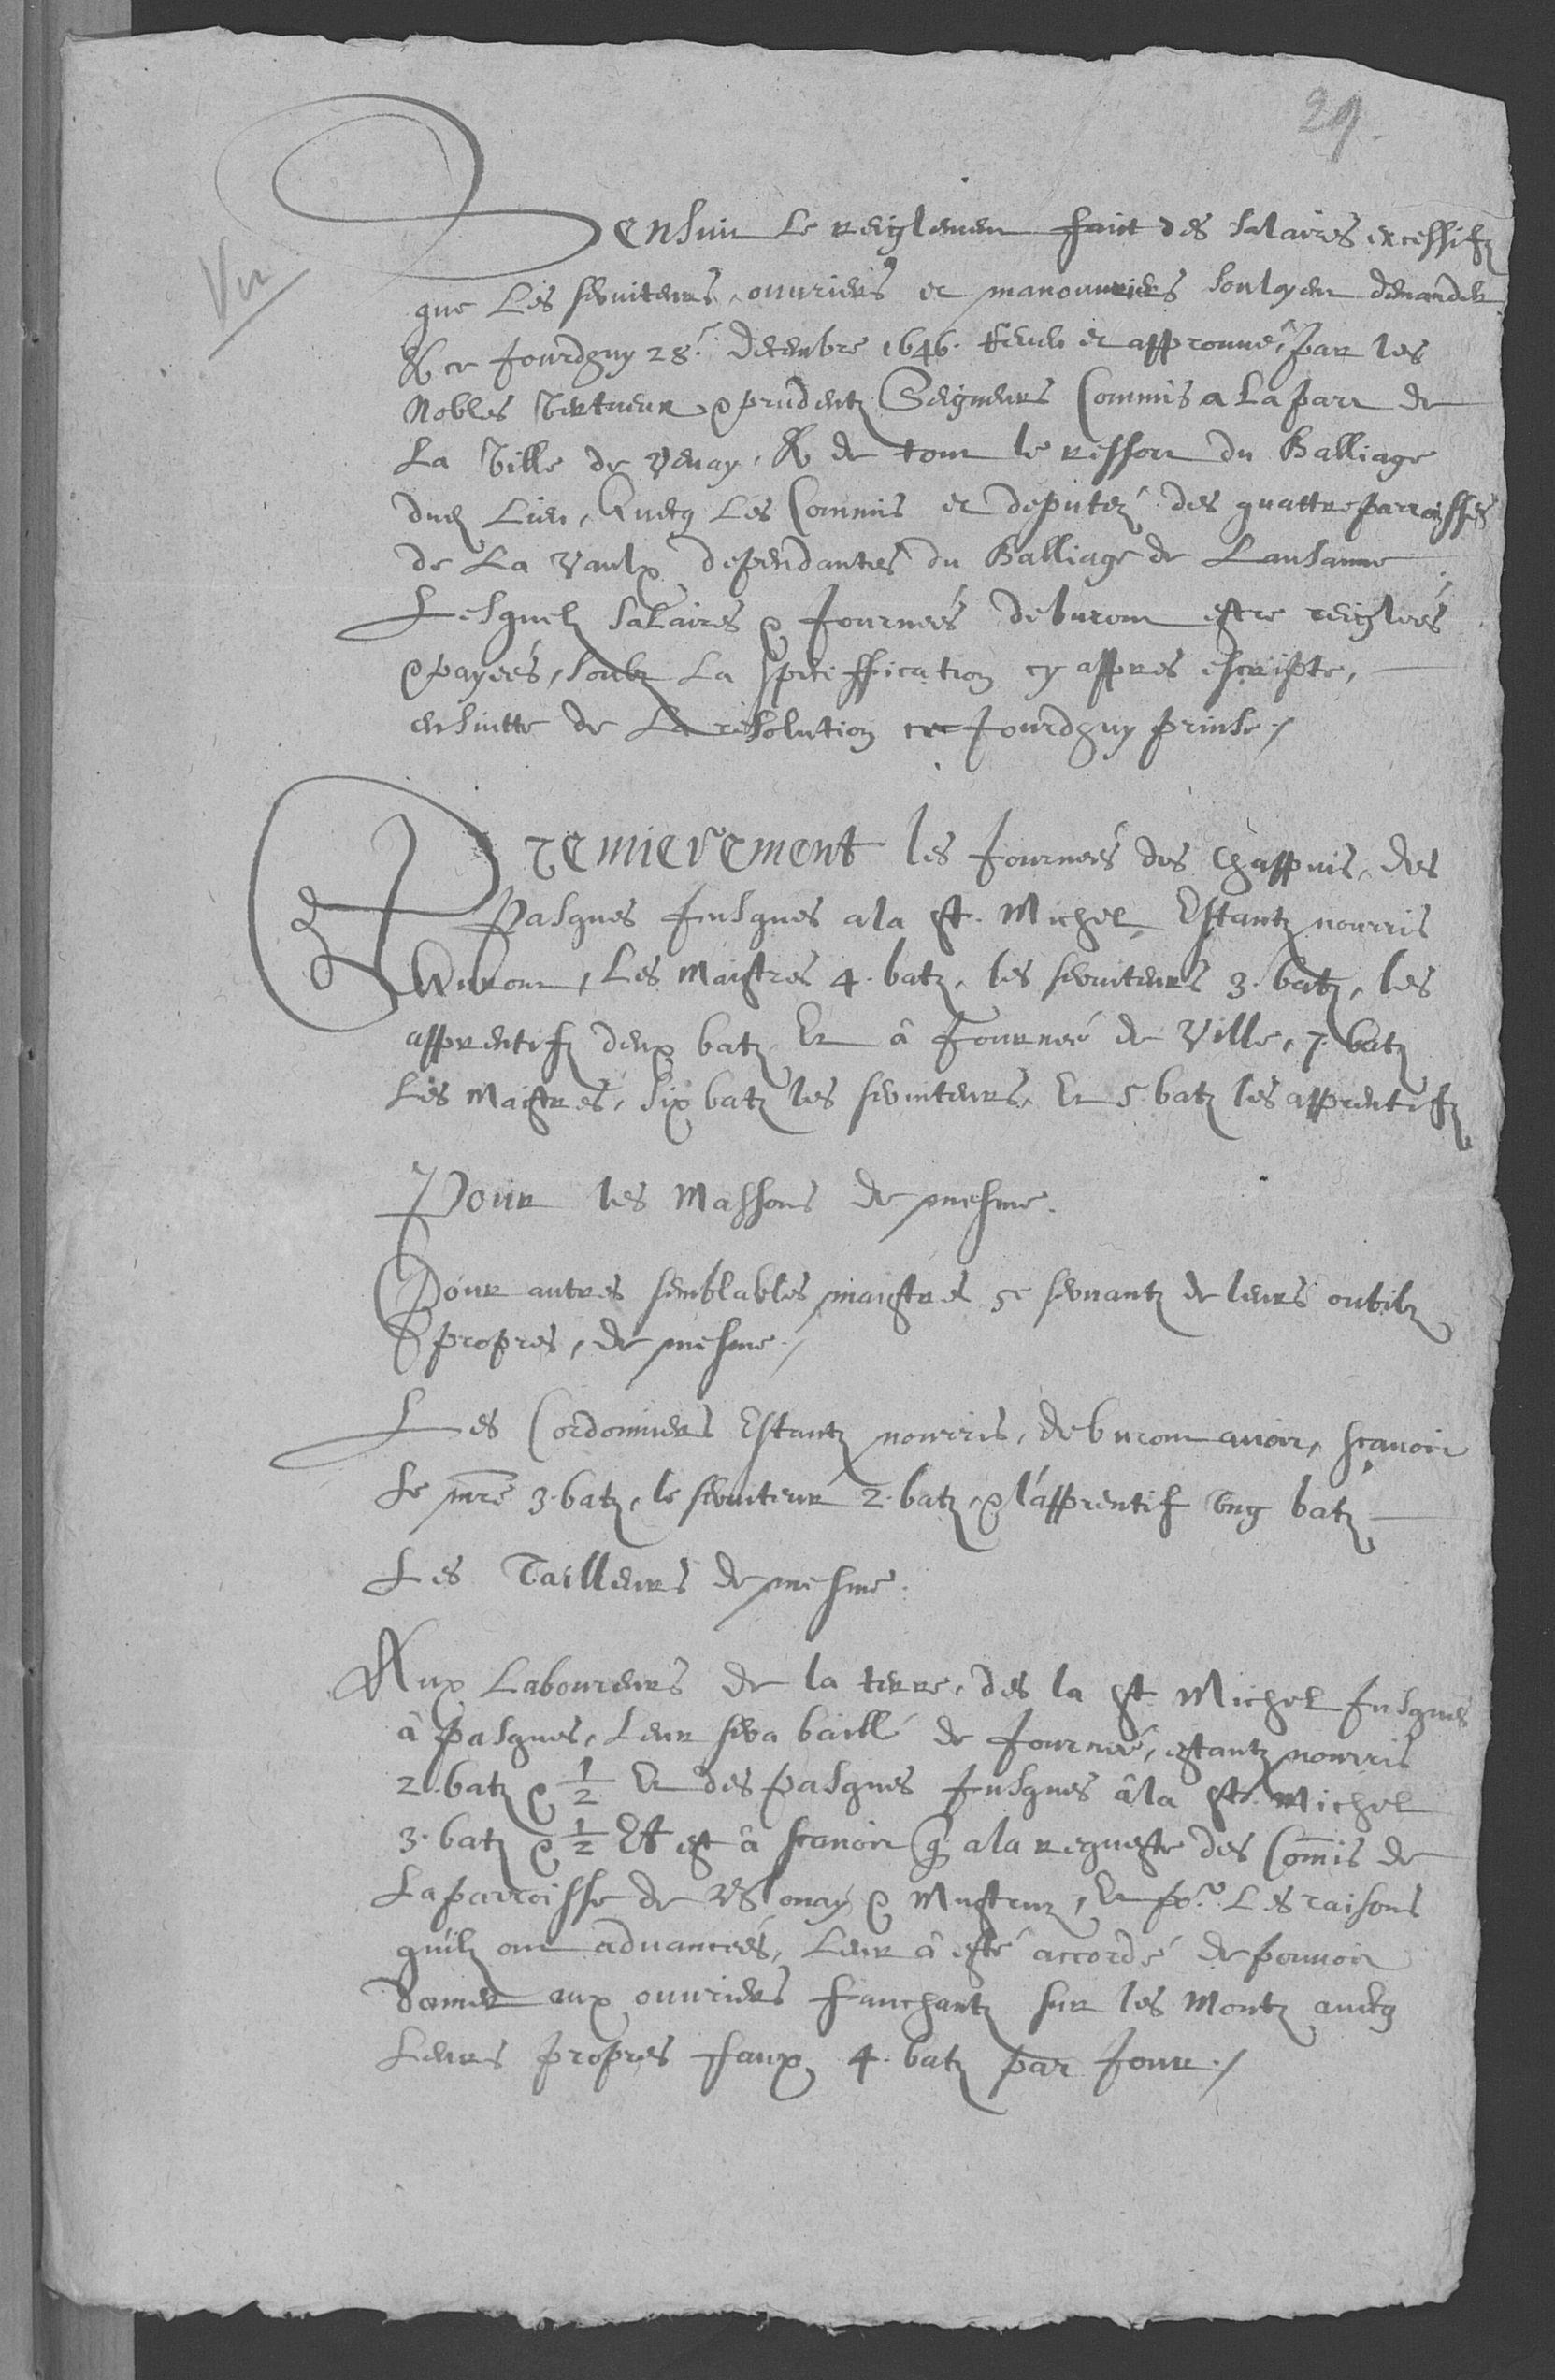 29.
Vu
Sensuit le reiglement faict des salaires excessifz
que les serviteurs, ouvriers et manouvriers souloyent demander
A ce Jourdhuy 28.e decembre 1646. et approuvé, par les
Nobles Vertueux & prudentz Seigneurs Commis a la part de
la Ville de Vevay, & de tout le ressort du Balliage
dud Lieu, Avecq les Commis et deputez des quattre parroisses
de La Vaulx dependantes du Balliage de Lausanne
Lesquelz salaires & Journeés debvront estre reigleés
& payeés, soubz la speciffication cy appres escripte,
ensuitte de La resolution ce Jourdhuy prinse /
Premierement les Journeés des Chappuis, des
Pasques Jusques a la st. Michel, Estantz nourris
Auront, Les Maistres 4. batz, les serviteurs 3. batz, les
apprentifz deux batz Et â Journeé de Ville, 7. batz
Les Maistres, six batz les serviteurs, Et 5. batz les apprentifz
Pour les Massons de mesme.
Pour autres semblables maistres se servantz de leurs outilz
propres, de mesme. /
Les Cordonniers Estantz nourris, debvront avoir, scavoir
Le mre 3. batz, le serviteur 2. batz, & l'apprentif ung batz
Les Tailleurs de mesme.
Aux Laboureurs de la terre, des la st. Michel Jusques
â pasques, Leur sera baillé de Journeé, estantz nourris
2. batz & 1/2 Et des pasques Jusques â la st. Michel
3. batz & 1/2 Et est â scavoir q. a la requeste des Com̄is de
La parroisse de Blonay & Mustruz, Et pr. Les raisons
quilz ont advanceés, Leur â esté accordé de pouvoir
donner aux ouvriers fauchantz sur les Montz avecq
Leurs propres faux 4. batz par Jour. /